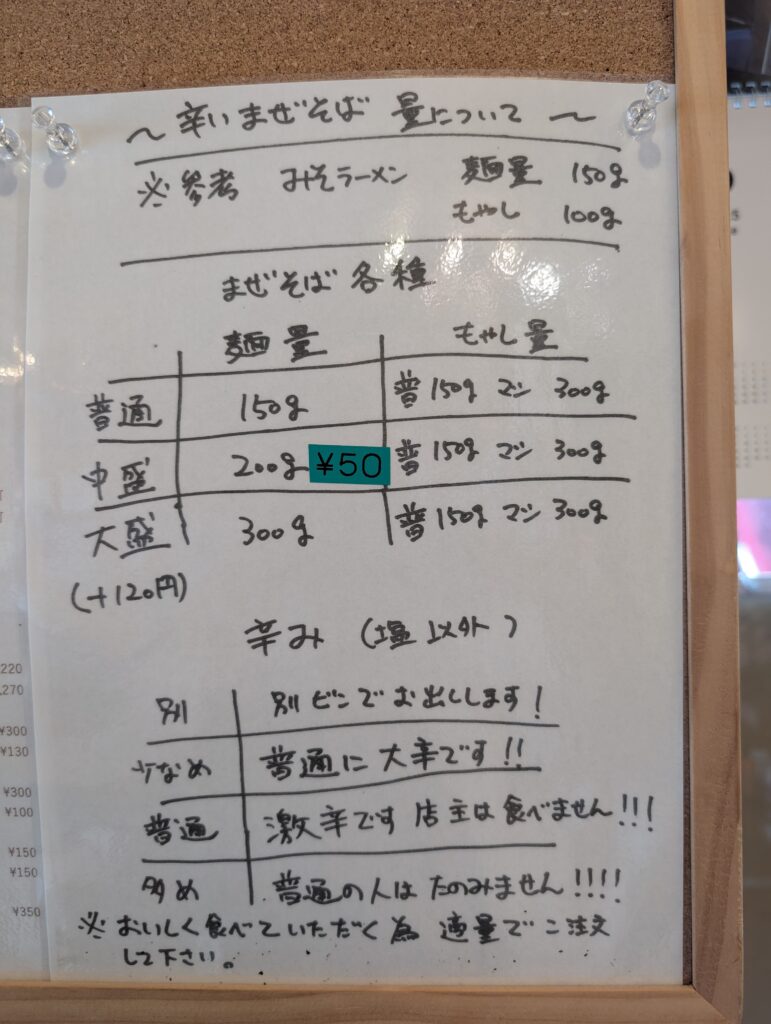 〜 辛いまぜそば 量について 〜
※参考 みそラーメン 麺量 150g
もやし 100g
まぜそば各種
麺量 もやし量
普通 150g 普150g マシ 300g
中盛 200g ¥50 普150g マシ 300g
大盛 300g 普150g マシ 300g
(+120円)
辛み (塩以外)
別 別ビンでお出しします!
少なめ 普通に大辛です!!
普通 激辛です 店主は食べません!!!
多め 普通の人はたのみません!!!!
※ おいしく食べていただく為 適量でご注文
して下さい。
220
,270
¥300
¥130
¥300
¥100
¥150
¥150
¥350